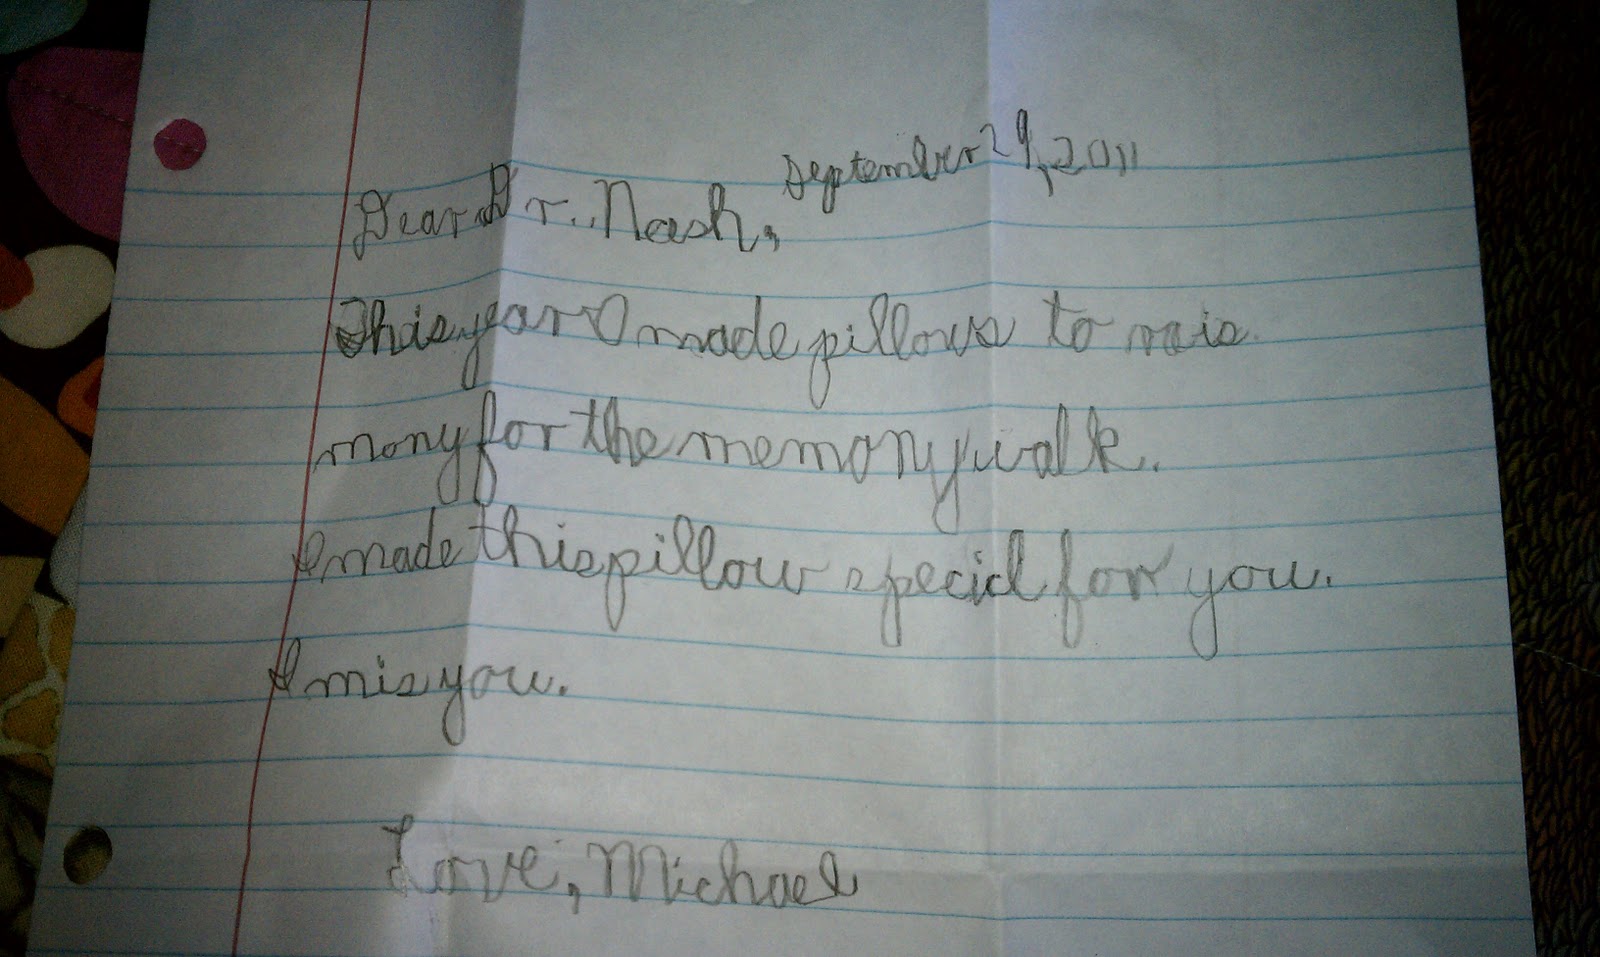 September 29, 2011
Dear Dr. Nash,
This year I made pillows to rais
mony for the memory walk.
I made this pillow special for you.
I mis you.
Love, Michael